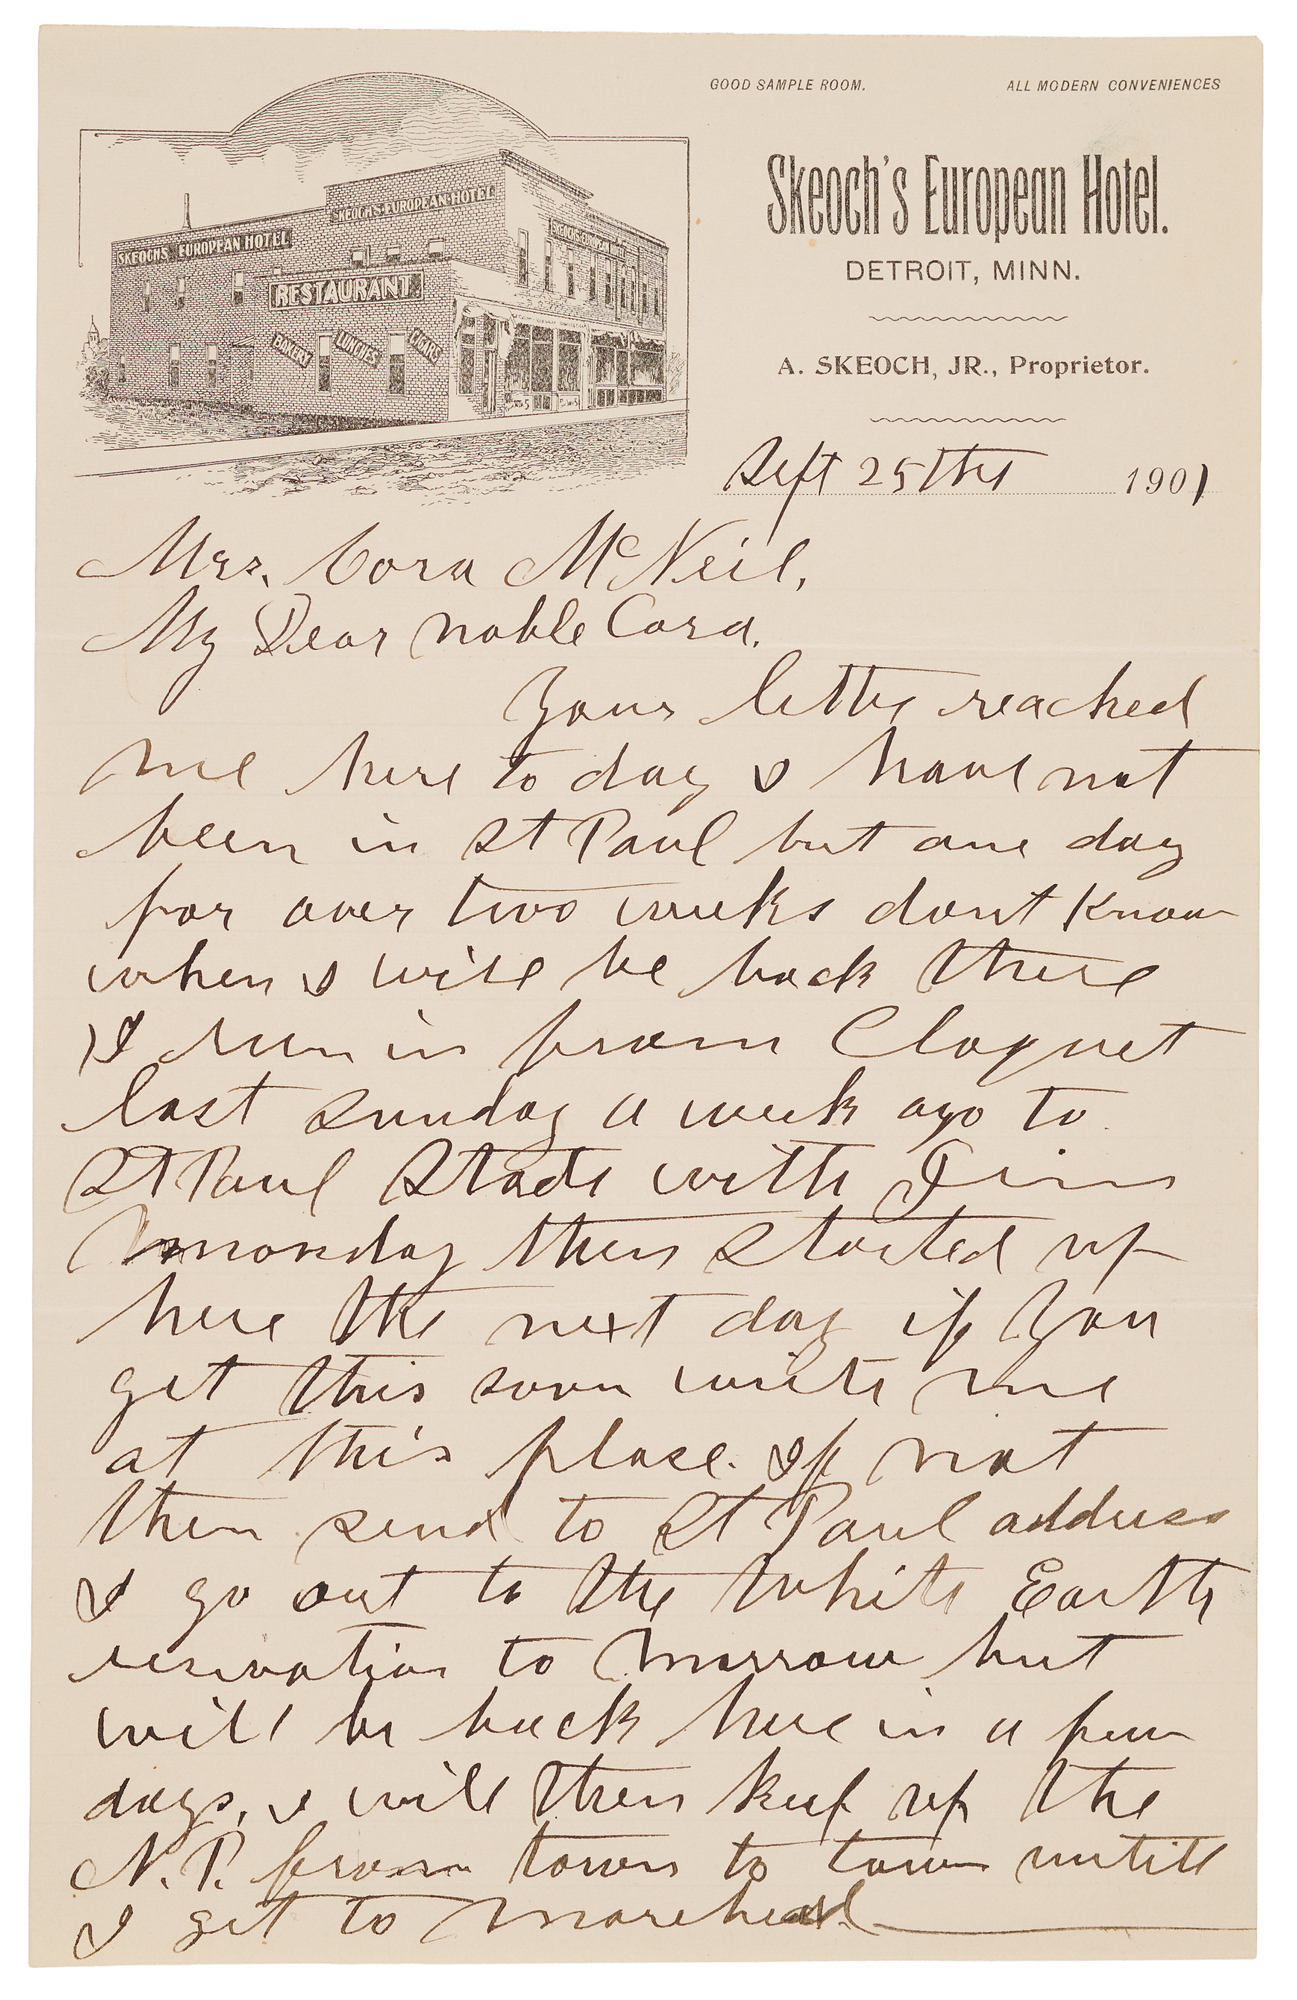 GOOD SAMPLE ROOM.
ALL MODERN CONVENIENCES
SKEOCHS EUROPEAN HOTEL
SKEOCHS EUROPEAN HOTEL
RESTAURANT
BAKERY
LUNCHES
CIGARS
Skeoch's European Hotel.
DETROIT, MINN.
A. SKEOCH, JR., Proprietor.
Sept 25th 1901
Mrs. Cora McNeil,
My Dear noble Cora.
Your letter reached
me here to day I have not
been in St Paul but one day
for over two weeks dont Know
when I will be back there
I run in from Cloquet
last sunday a week ago to
St Paul Stade with Jim
monday then started up
here the next day if You
get this soon write me
at this place. If not
then send to St Paul address
I go out to the White Earth
reservation to morrow but
will be back here in a few
days, I will then keep up the
N.P. from town to town untill
I get to Morehead